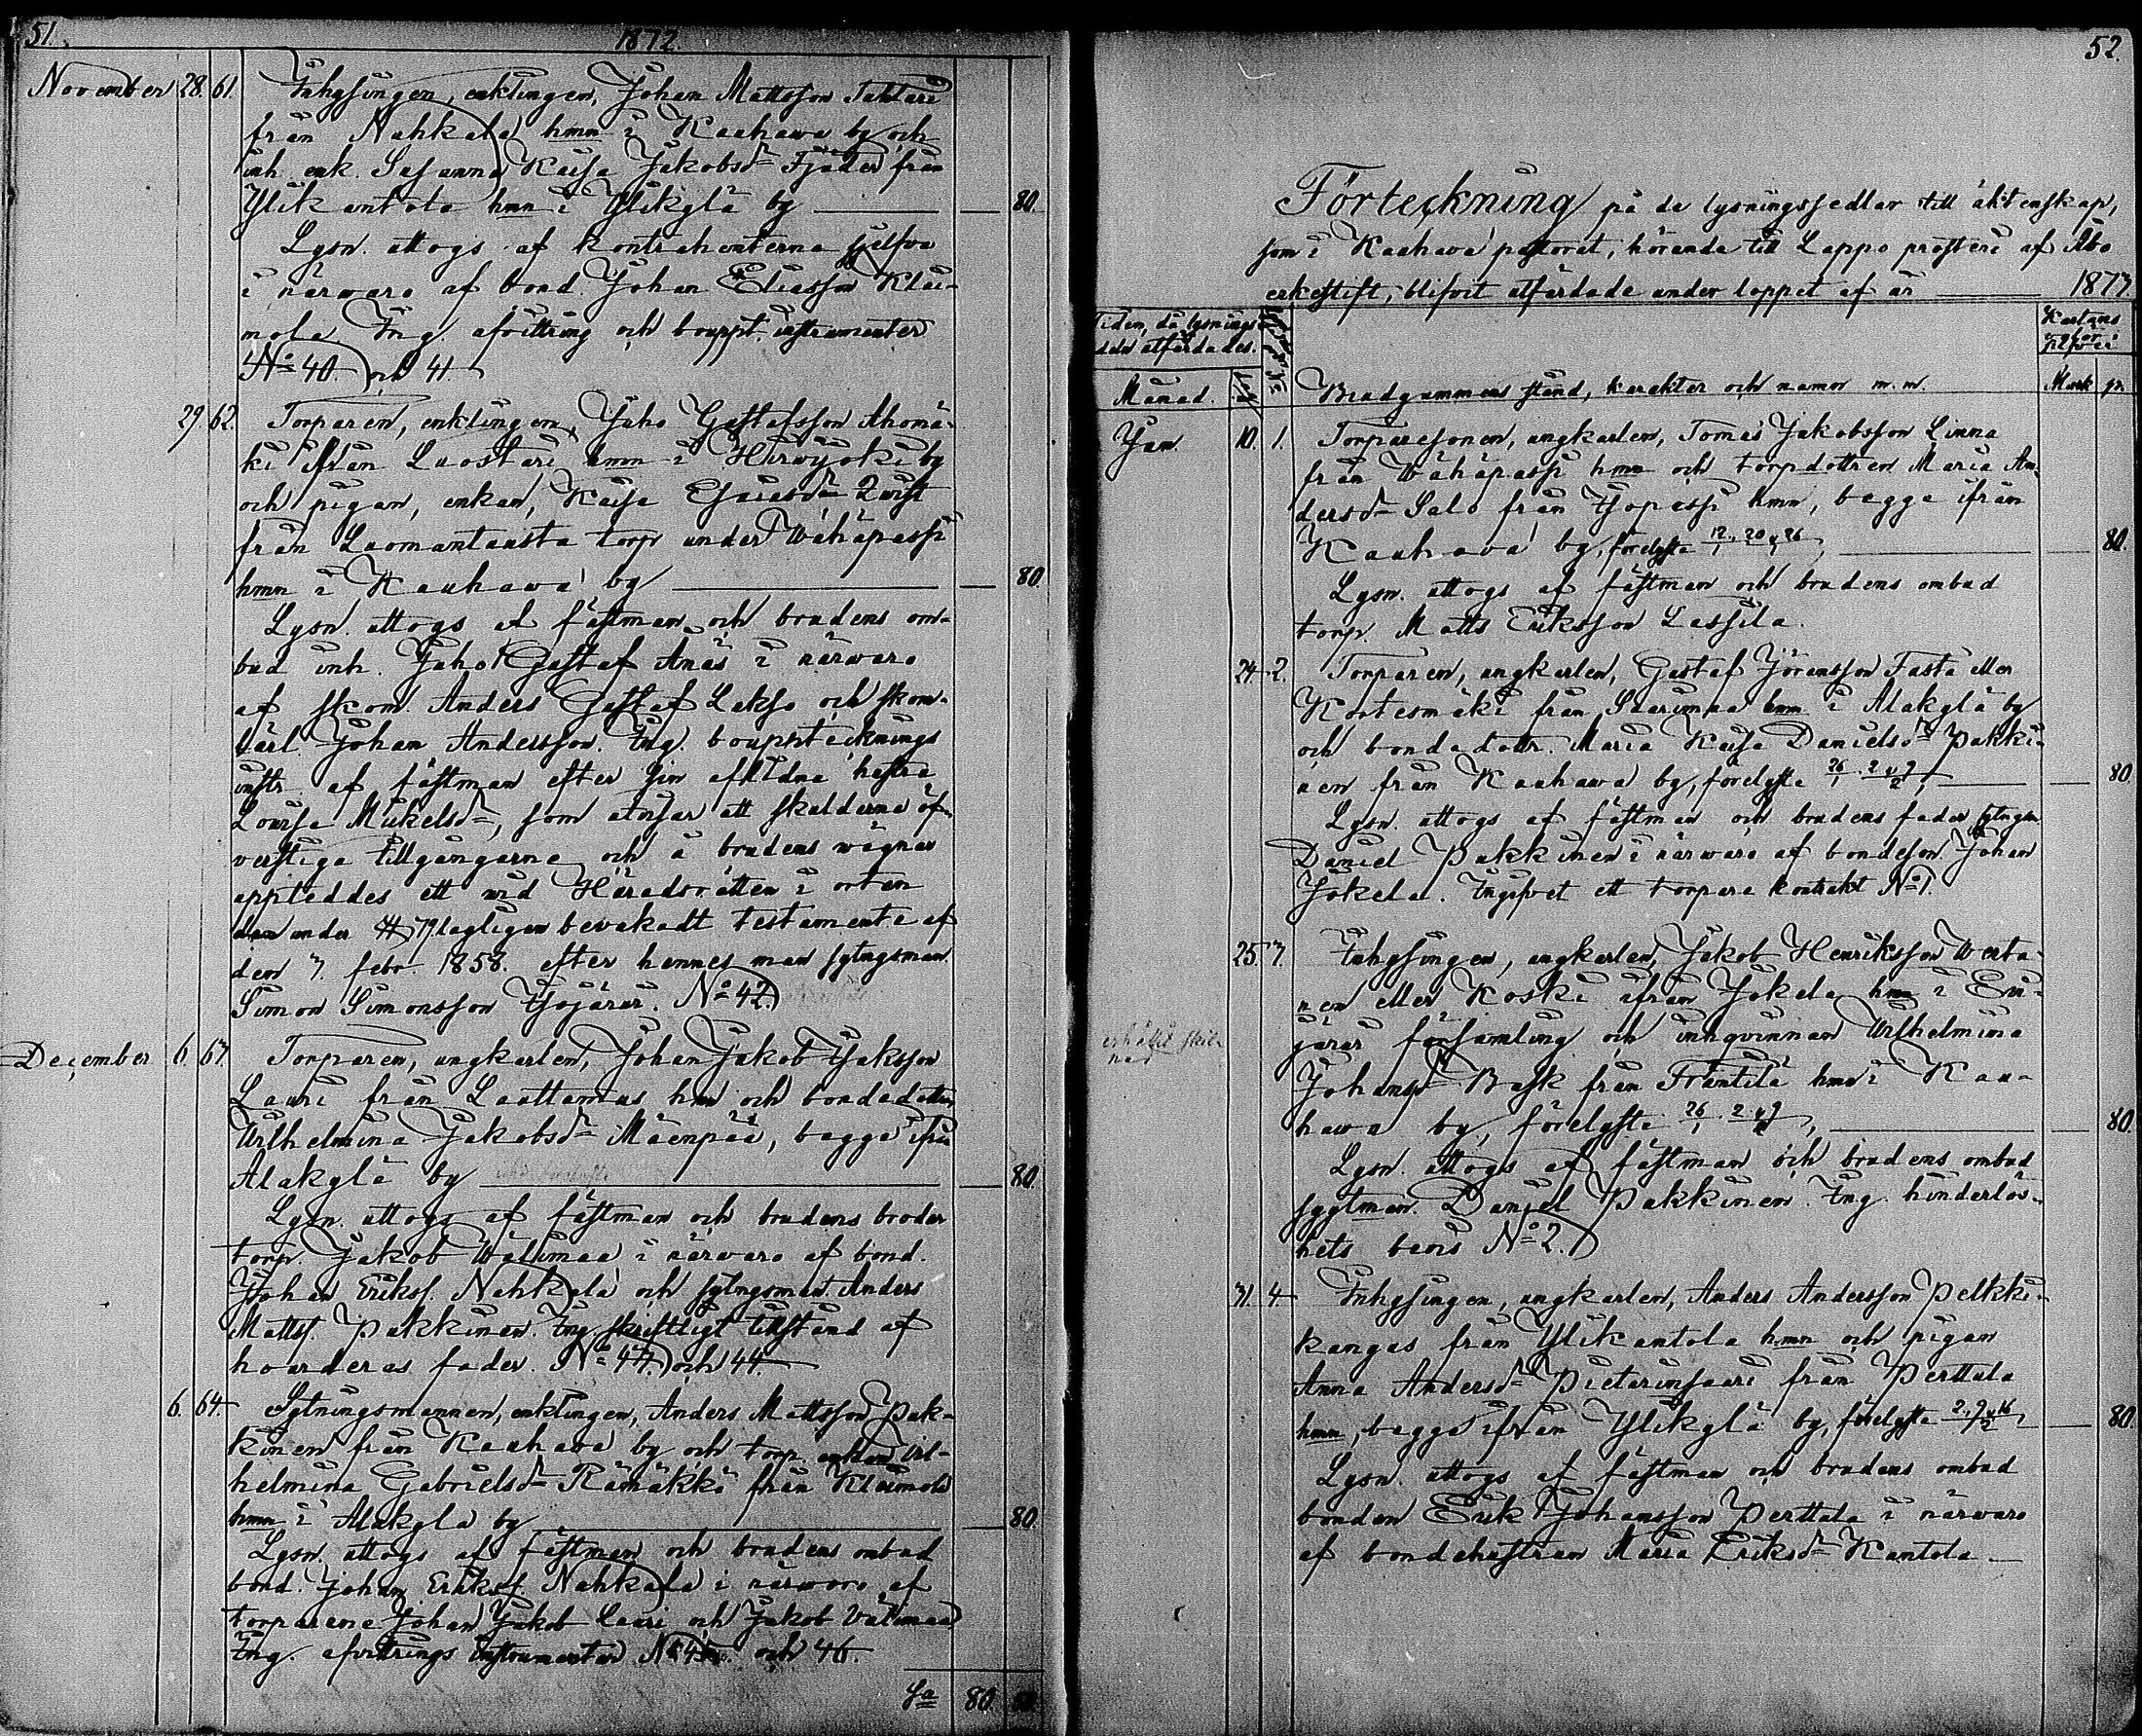 51.
1872.
November 28. 61. Inhysingen, enklingen, Johan Mattsson Taktari
från Nahkala hmn i Kauhawa by och
inh. enk. Susanna Kaisa Jakobsdr Fjäder från
Ylikantola hmn i Ylikylä by 80.
Lysn. uttogs af kontrahenterna sjelfva
i närwaro af bond. Johan Eliasson Klei-
mola. Ing. afvittring och bouppt. instrumenter
No 40. och 41.
29. 62. Torparen, enklingen, Juho Gustafsson Ahomä-
ki från Luostari hmn i Hirvijoki by
och pigan, enkan, Kaisa Esaiasdr Qvist
från Luomantausta torp under Wähäpassi
hmn i Kauhawa by 80.
Lysn. uttogs af fästman och brudens om-
bud inh. Juho Gustaf Anäs i närwaro
af skom. Anders Gustaf Lakso och skom.
lärl. Johan Andersson. Ing. bouppteknings
instr. af fästman efter sin aflidna hustru
Lovisa Mikelsdr, som utvisar att skulderna öf-
verstiga tillgångarna och å brudens wägnar
uppteddes ett wid Häradsrätten i orten
under § 79 lagligen bevakadt testamente af
den 3. febr. 1858. efter hennes man sytngsman
Simon Simonsson Isojärvi. No 42.
December 6. 63. Torparen, ungkarlen, Johan Jakob Isaksson
Lauri från Laattamus hmn och bondedottren
Wilhelmina Jakobsdr Mäenpää, begge ifrån
Alakylä by 80.
Lysn. uttogs af fästman och brudens broder
torp. Jakob Wälimaa i närwaro af bond.
Johan Erikss. Nahkala och sytngsman. Anders
Matts. Pakkinen. Ing. skriftligt tillstånd af
hvarderas fader. No 43. och 44.
6. 64. Sytningsmannen, enklingen, Anders Mattsson Pak-
kinen från Kauhawa by och torp. enkan Vil-
helmina Gabrielsdr Rämäkkö från Kleimola
hmn i Alakylä by 80.
Lysn. uttogs af fästman och brudens ombud
bond. Johan Erikss. Nahkala i närwaro af
torparene Johan Jakob Lauri och Jakob Välimaa
Ing. afvittrings instrumenter No 45. och 46.
Sa 80.
52.
Förteckning på de lysningssedlar till äktenskap,
som i Kauhava pastorat, hörande till Lappo prosteri af Åbo
erkestift, blifvit utfärdade under loppet af år 1873.
Tiden, då lysnings-
deln utfärdades.
Månad.
Brudgummens stånd, karakter och namn m. m.
Mark p.
Jan. 10. 1. Torparesonen, ungkarlen, Tomas Jakobsson Linna
från Wähäpassi hmn och torpdottren Maria An-
dersdr Salo från Isopassi hmn, begge ifrån
Kauhava by, förelyste 12., 20 o 26/1, 80.
Lysn. uttogs af fästman och brudens ombud
torp. Matts Eriksson Lassila.
24. 2. Torparen, ungkarlen, Gustaf Jöransson Fasta eller
Kortesmäki från Saarimaa hmn i Alakylä by
och bondedottr. Maria Kaisa Danielsdr Pakki-
nen från Kauhawa by, förelyste 26/1. 2 o 9/2, 80.
Lysn. uttogs af fästman och brudens fader sytngsm.
Daniel Pakkinen i närwaro af bondeson Johan
Jokela. Ingifvet ett torpare kontrakt No 1.
25. 3. Inhysingen, ungkarlen, Jakob Henriksson Werta-
nen eller Koski ifrån Jokela hmn i Evi-
järvi församling och inhqvinnan Wilhelmina
Johansdr Bask från Franttila hmn i Kau-
hawa by, förelyste 26/1. 2 o 9/2, 80.
Lysn. uttogs af fästman och brudens ombud
sygtman. Daniel Pakkinen. Ing. hinderlös-
hets bevis No 2.
31. 4. Inhysingen, ungkarlen, Anders Andersson Pelkki-
kangas från Ylikantola hmn och pigan
Anna Andersdr Pietarinsaari från Perttula
hmn, begge ifrån Ylikylä by, förelyste 2., 9 o 16/2, 80.
Lysn. uttogs af fästman och brudens ombud
bonden Erik Johansson Perttula i närwaro
af bondehustrun Maria Eriksdr Kantola.